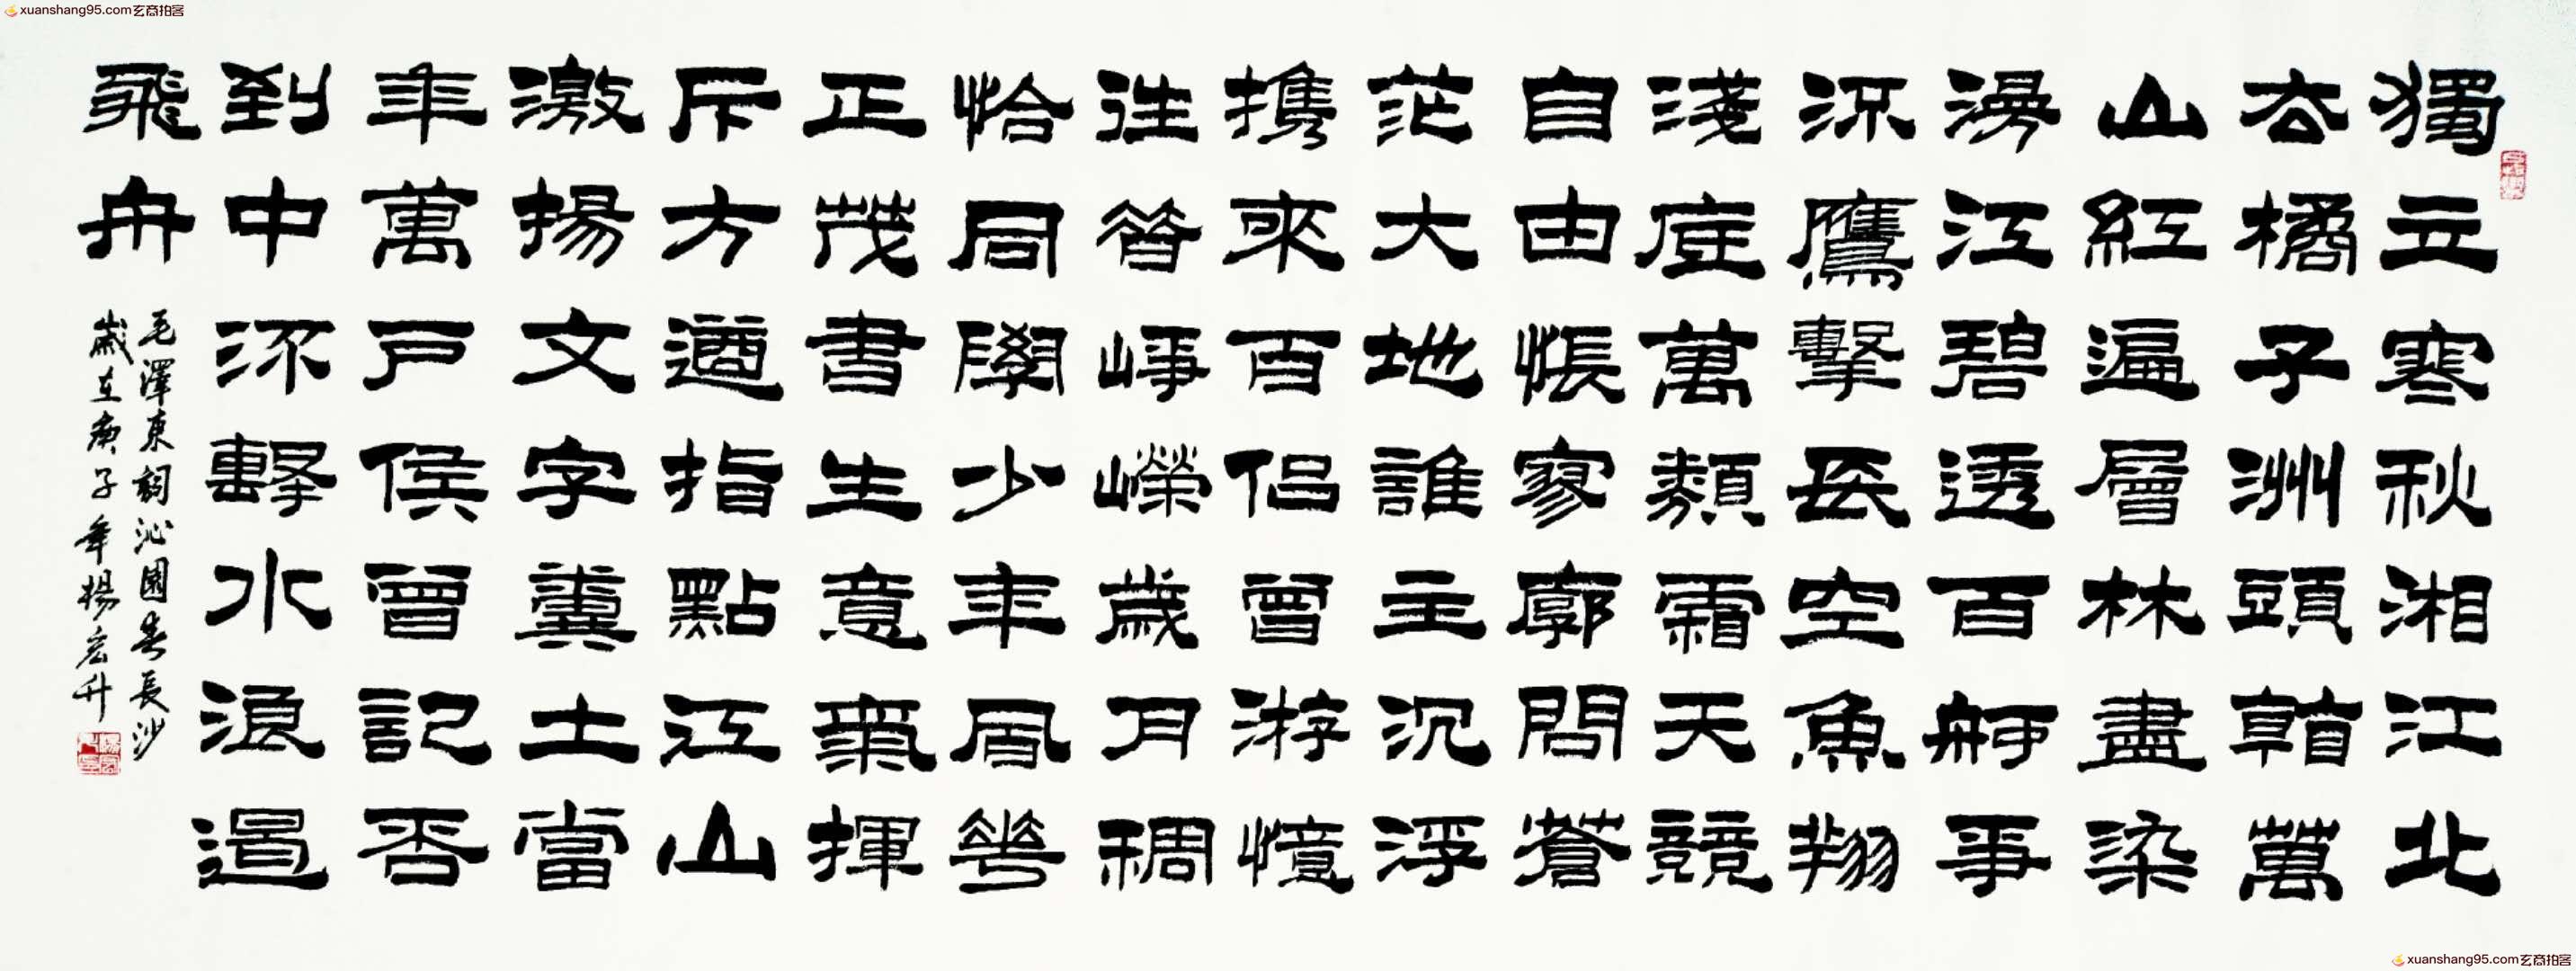 xuanshang95.com玄商拍客
獨立寒秋湘江北
去橘子洲頭看萬
山紅遍層林盡染
漫江碧透百舸爭
流鷹擊長空魚翔
淺底萬類霜天競
自由悵寥廓問蒼
茫大地誰主沉浮
携來百侶曾游憶
往昔崢嶸歲月稠
恰同學少年風華
正茂書生意氣揮
斥方遒指點江山
激揚文字糞土當
年萬戶侯曾記否
到中流擊水浪遏
飛舟
毛澤東詞沁園春長沙
歲在庚子年楊宏升
xuanshang95.com玄商拍客